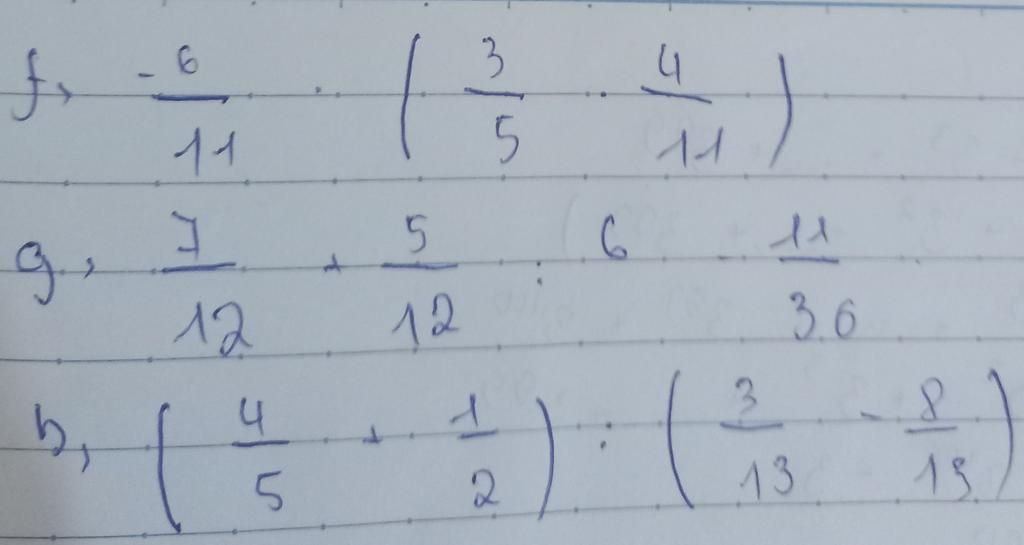 f, -6/11 . ( 3/5 . 4/11 )
g, 7/12 + 5/12 : 6 - 11/36
h, ( 4/5 + 1/2 ) : ( 3/13 - 8/13 )